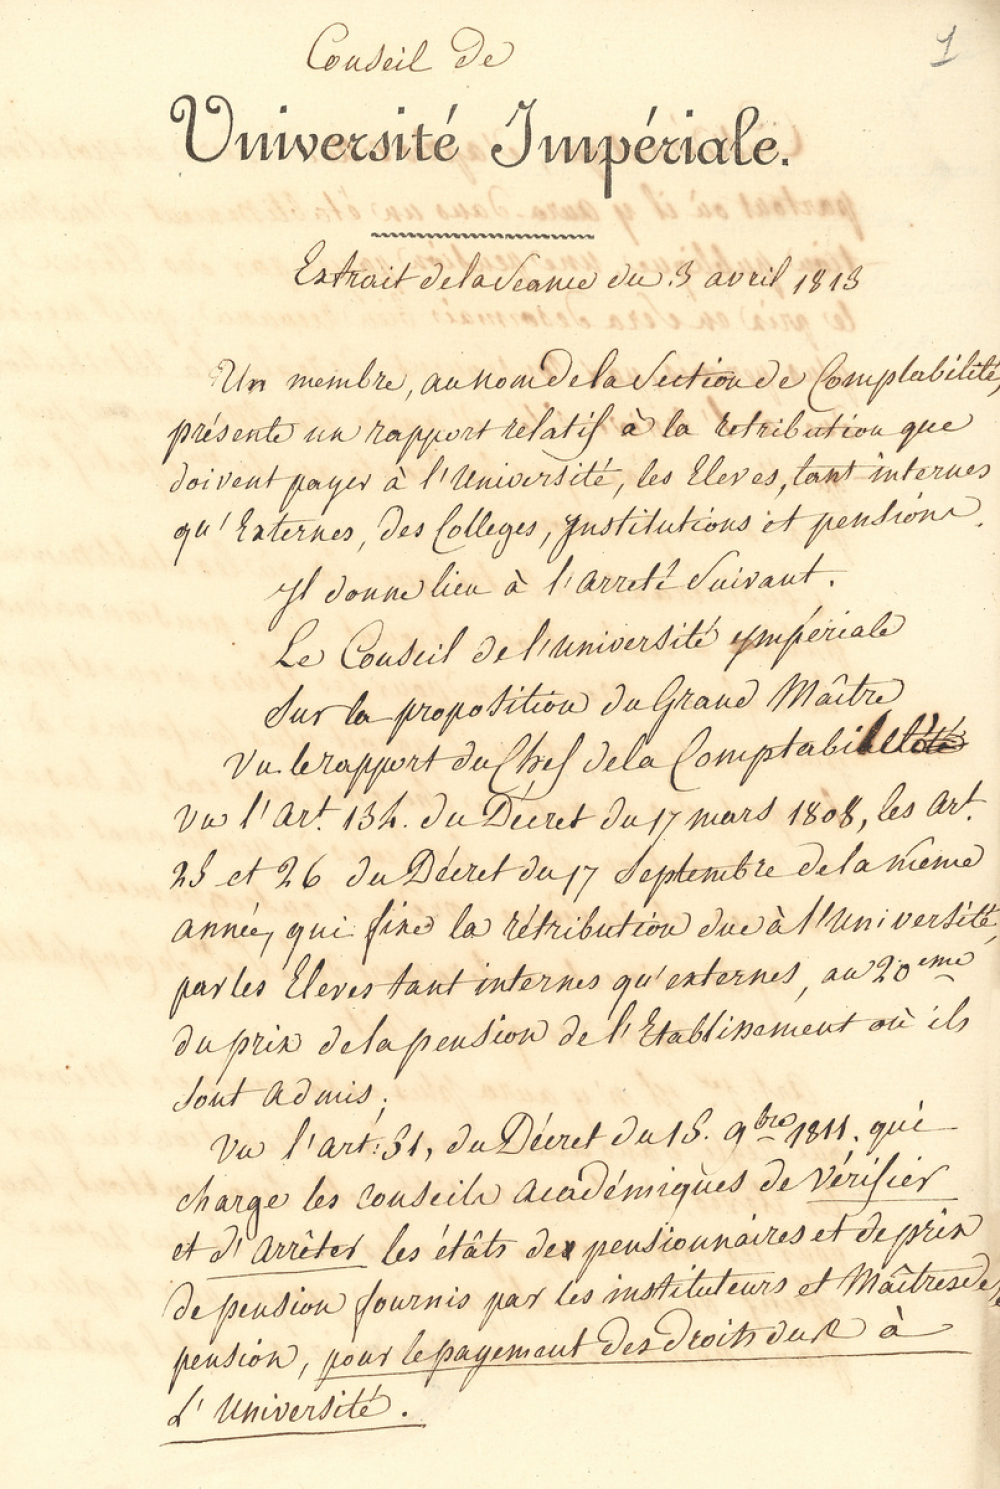 1
Conseil de
Université Impériale.
Extrait de la Séance du 3 avril 1813
Un membre, au nom de la Section de Comptabilité,
présente un rapport relatif à la retribution que
doivent payer à l'Université, les Eleves, tant internes
qu'Externes, des Colleges, Institutions et pensions.
Il donne lieu à l'arreté Suivant.
Le Conseil de l'Université Impériale
Sur la proposition du Grand Maître
Vu le rapport du Chef de la Comptabilité
Vu l'art. 134. du Décret du 17 mars 1808, les art.
25 et 26 du Décret du 17 Septembre de la même
année, qui fixe la rétribution due à l'Université,
par les Eleves tant internes qu'externes, au 20eme
du prix de la pension de l'Etablissement où ils
Sont admis;
Vu l'art: 51, du Décret du 15. 9bre 1811. qui
charge les conseils académiques de vérifier
et d'arrêter les états des pensionnaires et de prix
de pension fournis par les instituteurs et Maîtres de
pension, pour le payement des droits dus à
L'Université.